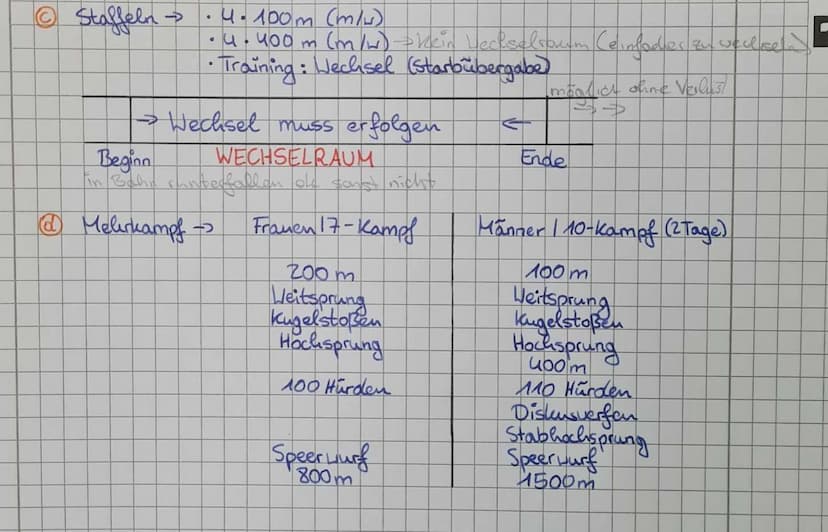 c Staffeln → · 4·100m (m/w)
· 4·400m (m/w) → Kein Wechselraum (einfacher zu wechseln)
· Training: Wechsel (Stabübergabe)
möglich ohne Verlust
→ Wechsel muss erfolgen ←
Beginn WECHSELRAUM Ende
in Bahn ok sonst nicht
d Mehrkampf → Frauen / 7-Kampf Männer / 10-Kampf (2 Tage)
200m 100m
Weitsprung Weitsprung
Kugelstoßen Kugelstoßen
Hochsprung Hochsprung
400m
100 Hürden 110 Hürden
Diskuswerfen
Stabhochsprung
Speerwurf Speerwurf
800m 1500m